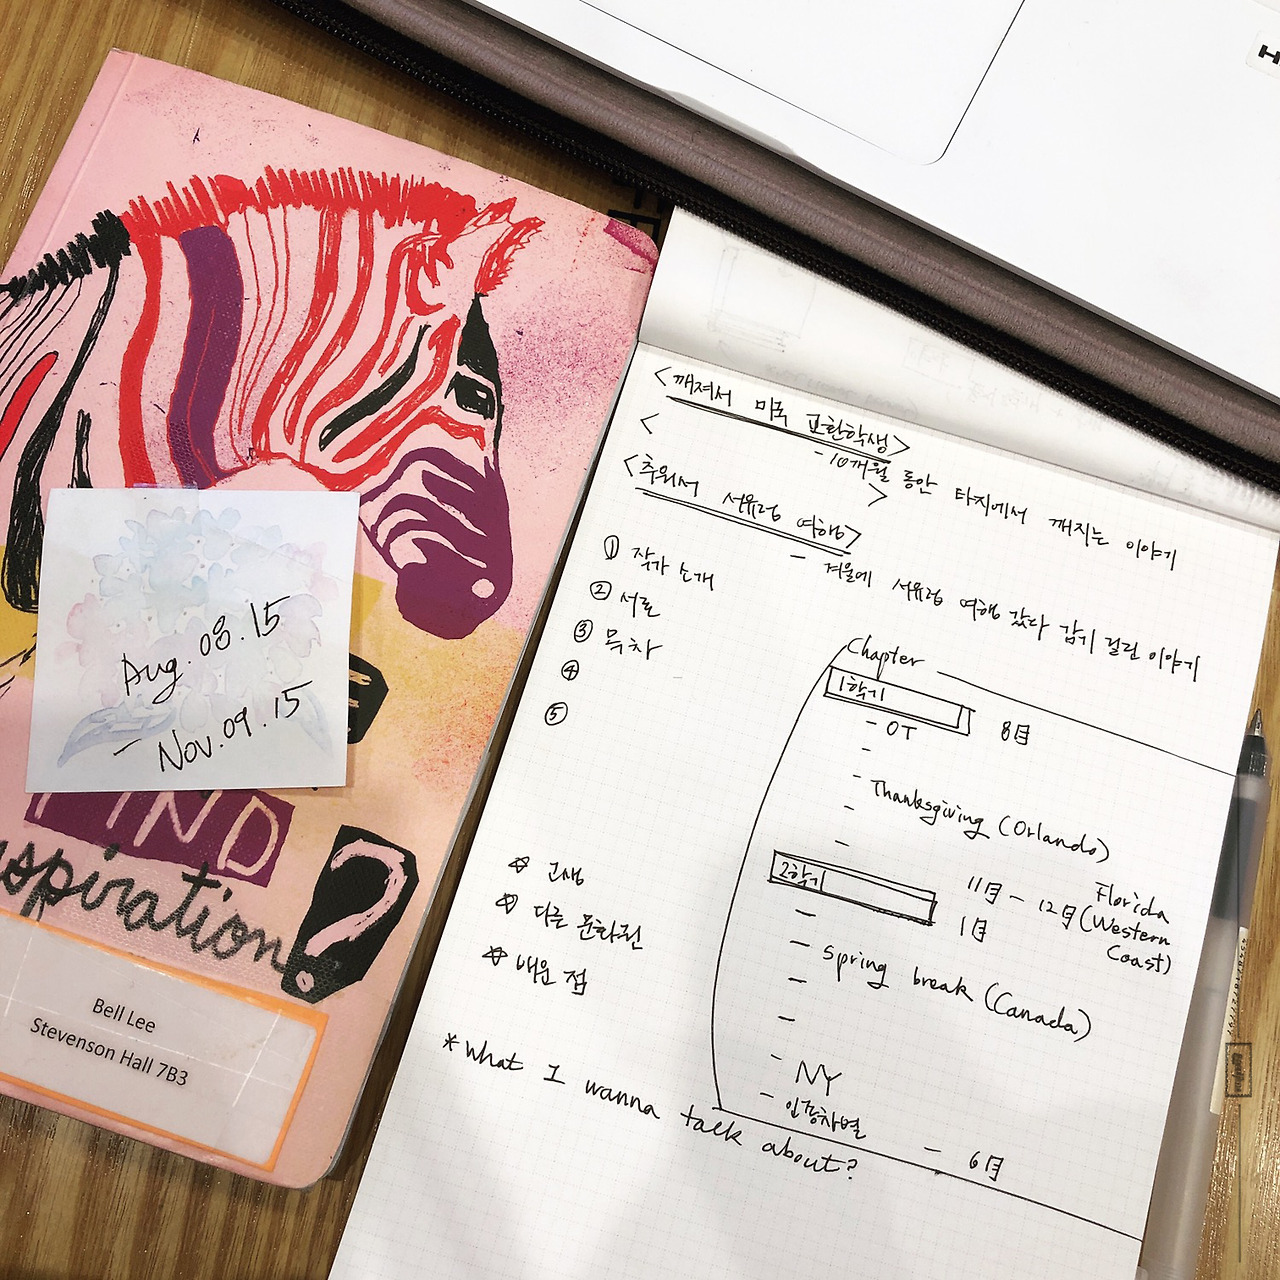 Aug. 08. 15
- Nov. 09. 15
FIND
inspiration
?
Bell Lee
Stevenson Hall 7B3
<깨져서 미국 교환학생>
- 10개월 동안 타지에서 깨지는 이야기
< >
<추워서 서유럽 여행>
- 겨울에 서유럽 여행 갔다 감기 걸린 이야기
① 작가 소개
② 서론
③ 목차
④
⑤
Chapter
1학기
- OT 8月
-
-
Thanksgiving (Orlando)
-
-
Florida
11月 - 12月 (Western Coast)
2학기
1月
-
-
spring break (Canada)
-
-
-
NY
- 인종차별
- 6月
☆ 고생
☆ 다른 문화권
☆ 배운 점
* What I wanna talk about?